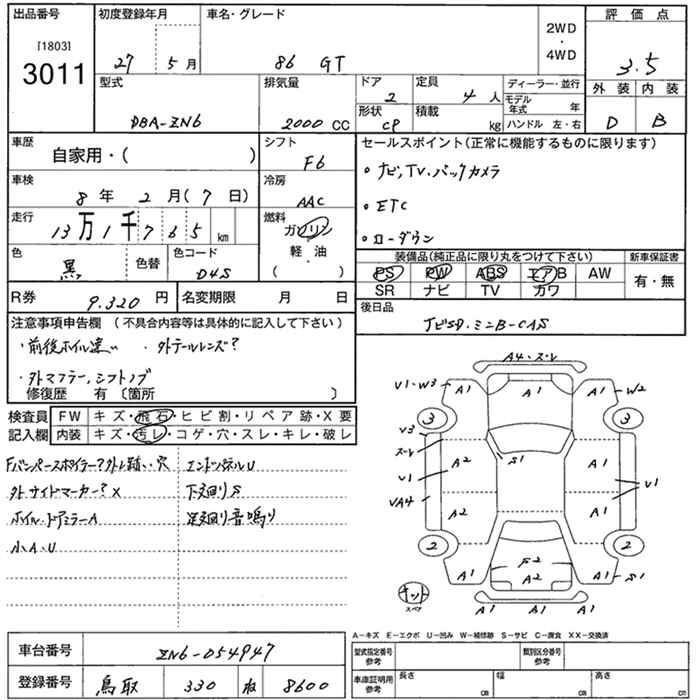 出品番号 初度登録年月 車名・グレード 2WD・4WD 評価点
[1803]
3011
27 5月 86 GT 3.5
型式 排気量 ドア 2 定員 4人 ディーラー・並行 外装 内装
DBA-ZN6 2000CC 形状 CP 積載 kg モデル年式 年 D B
ハンドル 左・右
車歴 シフト セールスポイント(正常に機能するものに限ります)
自家用・( ) F6 ・ナビ,TV.バックカメラ
車検 冷房 ・ETC
8年2月(7日) AAC ・ローダウン
走行 燃料
13万1千765km ガソリン
軽・油
( )
色 色替 色コード
黒 D4S
装備品(純正品に限り丸をつけて下さい) 新車保証書
PS PW ABS エアB AW 有・無
SR ナビ TV カワ
R券 9.320円 名変期限 月 日 後日品
注意事項申告欄(不具合内容等は具体的に記入して下さい)
・前後ホイル違い ・外テールレンズ?
・外マフラー,シフトノブ
修復歴 有〔箇所 〕
検査員 FW キズ・飛石・ヒビ割・リペア跡・X要
記入欄 内装 キズ・汚レ・コゲ・穴・スレ・キレ・破レ
エンドパネルU
外サイドマーカー?X 下廻りS
ホイル・ドアミラーA 足廻り音鳴り
小A,U
A4・スレ
V1・W3 A1 A1 A1 W2
3 3
V3
スレ
S1
A2 A1
V1 V1
VA4
A2 A1
2 2
F2
A1 A2 A1 S1
A1 A1 A1
キット
スペア
A−キズ E−エクボ U−凹み W−補修跡 S−サビ C−腐食 XX−交換済
車台番号 ZN6-054947 型式指定番号 参考 類別区分番号 参考
登録番号 鳥取 330 ね 8600 車庫証明用 参考 長さ cm 幅 cm 高さ cm